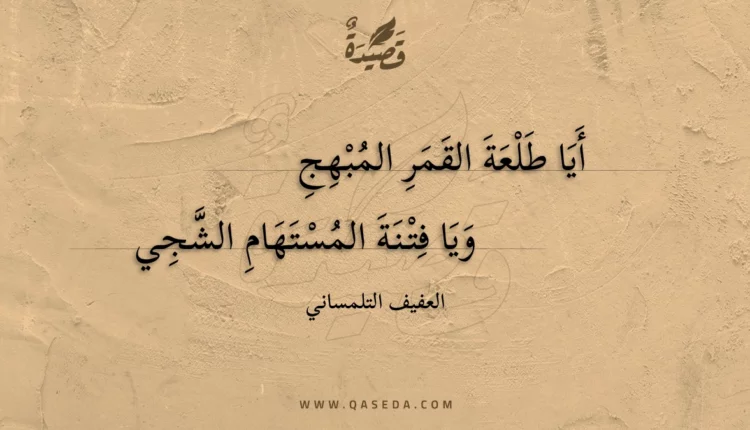 قَصِيدَةٌ
أَيَا طَلْعَةَ القَمَرِ المُبْهِجِ
وَيَا فِتْنَةَ المُسْتَهَامِ الشَّجِي
العفيف التلمساني
WWW.QASEDA.COM